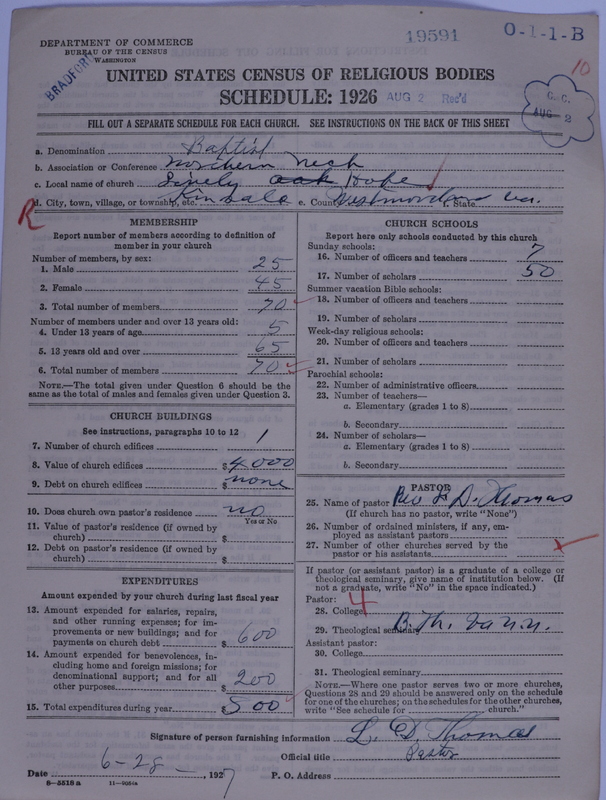 DEPARTMENT OF COMMERCE
BUREAU OF THE CENSUS
WASHINGTON
BRADFORD
19591
O-1-1-B
10
UNITED STATES CENSUS OF RELIGIOUS BODIES
SCHEDULE: 1926
AUG 2 Rec'd
C. C.
AUG 2
FILL OUT A SEPARATE SCHEDULE FOR EACH CHURCH. SEE INSTRUCTIONS ON THE BACK OF THIS SHEET
a. Denomination Baptist
b. Association or Conference Northern Neck
c. Local name of church Hope
d. City, town, village, or township, etc. Kinsale e. County Westmoreland f. State Va.
R
MEMBERSHIP
Report number of members according to definition of
member in your church
Number of members, by sex:
1. Male 25
2. Female 45
3. Total number of members 70
Number of members under and over 13 years old:
4. Under 13 years of age 5
5. 13 years old and over 65
6. Total number of members 70
NOTE.—The total given under Question 6 should be the
same as the total of males and females given under Question 3.
CHURCH BUILDINGS
See instructions, paragraphs 10 to 12
7. Number of church edifices 1
8. Value of church edifices $4000
9. Debt on church edifices $none
10. Does church own pastor's residence? no
Yes or No
11. Value of pastor's residence (if owned by
church) $
12. Debt on pastor's residence (if owned by
church) $
EXPENDITURES
Amount expended by your church during last fiscal year
13. Amount expended for salaries, repairs,
and other running expenses; for im-
provements or new buildings; and for
payments on church debt $600
14. Amount expended for benevolences, in-
cluding home and foreign missions; for
denominational support; and for all
other purposes $200
15. Total expenditures during year $800
CHURCH SCHOOLS
Report here only schools conducted by this church
Sunday schools:
16. Number of officers and teachers 7
17. Number of scholars 50
Summer vacation Bible schools:
18. Number of officers and teachers
19. Number of scholars
Week-day religious schools:
20. Number of officers and teachers
21. Number of scholars
Parochial schools:
22. Number of administrative officers
23. Number of teachers—
a. Elementary (grades 1 to 8)
b. Secondary
24. Number of scholars—
a. Elementary (grades 1 to 8)
b. Secondary
PASTOR
25. Name of pastor Rev L. D. Thomas
(If church has no pastor, write "None")
26. Number of ordained ministers, if any, em-
ployed as assistant pastors
27. Number of other churches served by the
pastor or his assistants
If pastor (or assistant pastor) is a graduate of a college or
theological seminary, give name of institution below. (If
not a graduate, write "No" in the space indicated.)
Pastor:
28. College 4
29. Theological seminary B. Th. Va U.
Assistant pastor:
30. College
31. Theological seminary
NOTE.—Where one pastor serves two or more churches,
Questions 28 and 29 should be answered only on the schedule
for one of the churches; on the schedules for the other churches,
write "See schedule for church."
Signature of person furnishing information L. D. Thomas
Official title Pastor
Date 6-28-, 1927 P. O. Address
8-5518 a 11-9084a